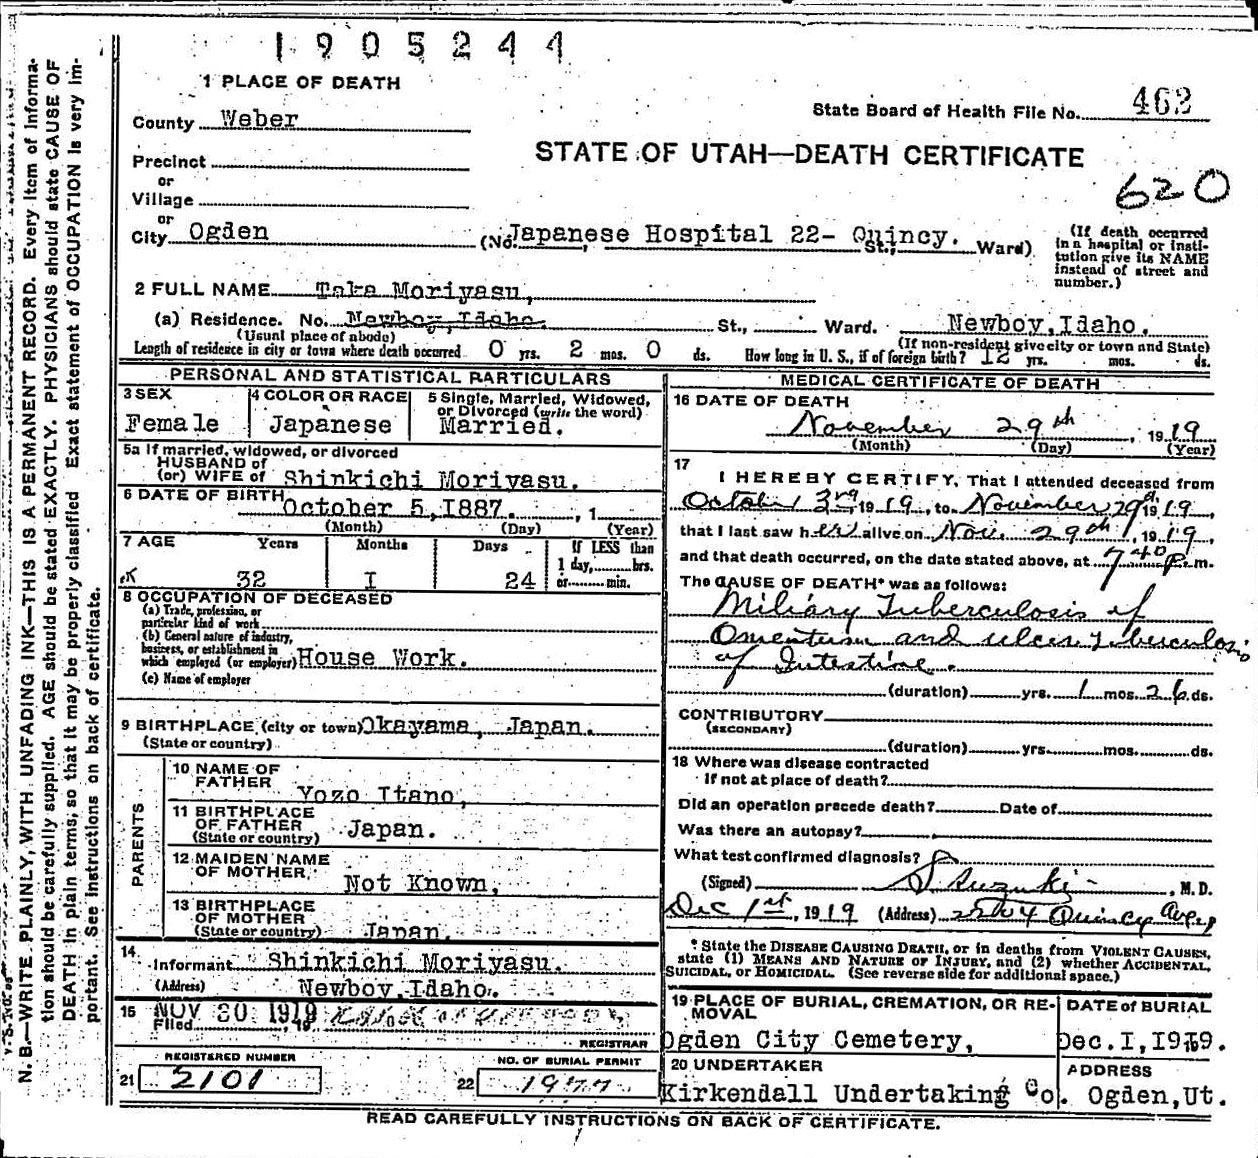 1905244
1 PLACE OF DEATH
State Board of Health File No. 462
County Weber
STATE OF UTAH—DEATH CERTIFICATE
620
Precinct
or
Village
or
City Ogden (No. Japanese Hospital 22- Quincy. St., Ward)
(If death occurred in a hospital or institution give its NAME instead of street and number.)
2 FULL NAME Taka Moriyasu,
(a) Residence. No. Newboy, Idaho. St., Ward. Newboy, Idaho.
(Usual place of abode) (If non-resident give city or town and State)
Length of residence in city or town where death occurred 0 yrs. 2 mos. 0 ds. How long in U. S., if of foreign birth? 12 yrs. mos. ds.
PERSONAL AND STATISTICAL PARTICULARS
3 SEX
Female
4 COLOR OR RACE
Japanese
5 Single, Married, Widowed,
or Divorced (write the word)
Married.
5a If married, widowed, or divorced
HUSBAND of
(or) WIFE of Shinkichi Moriyasu.
6 DATE OF BIRTH October 5, 1887. , 1
(Month) (Day) (Year)
7 AGE Years Months Days If LESS than
1 day, hrs.
32 I 24 or min.
8 OCCUPATION OF DECEASED
(a) Trade, profession, or
particular kind of work
(b) General nature of industry,
business, or establishment in
which employed (or employer) House Work.
(c) Name of employer
9 BIRTHPLACE (city or town) Okayama, Japan.
(State or country)
PARENTS
10 NAME OF
FATHER Yozo Itano,
11 BIRTHPLACE
OF FATHER Japan.
(State or country)
12 MAIDEN NAME
OF MOTHER Not Known,
13 BIRTHPLACE
OF MOTHER
(State or country) Japan.
14
Informant Shinkichi Moriyasu.
(Address) Newboy, Idaho.
15 NOV 30 1919
Filed , 19
REGISTRAR
REGISTERED NUMBER
21 2101
NO. OF BURIAL PERMIT
22 1977
MEDICAL CERTIFICATE OF DEATH
16 DATE OF DEATH
November 29th , 1919
(Month) (Day) (Year)
17
I HEREBY CERTIFY, That I attended deceased from
October 3rd, 1919, to November 29th, 1919,
that I last saw her alive on Nov. 29th, 1919,
and that death occurred, on the date stated above, at 740 P. m.
The CAUSE OF DEATH* was as follows:
Miliary Tuberculosis of
Omentum and ulcer Tuberculosis
of Intestine.
(duration) yrs. 1 mos. 26 ds.
CONTRIBUTORY
(SECONDARY)
(duration) yrs. mos. ds.
18 Where was disease contracted
if not at place of death?
Did an operation precede death? Date of
Was there an autopsy?
What test confirmed diagnosis?
(Signed) S. Suzuki , M.D.
Dec 1st, 1919 (Address) Quincy Ave,
* State the DISEASE CAUSING DEATH, or in deaths from VIOLENT CAUSES,
state (1) MEANS AND NATURE OF INJURY, and (2) whether ACCIDENTAL,
SUICIDAL, or HOMICIDAL. (See reverse side for additional space.)
19 PLACE OF BURIAL, CREMATION, OR RE-
MOVAL
Ogden City Cemetery,
DATE of BURIAL
Dec. I, 1919.
20 UNDERTAKER
Kirkendall Undertaking Co.
ADDRESS
Ogden, Ut.
READ CAREFULLY INSTRUCTIONS ON BACK OF CERTIFICATE.
N. B.—WRITE PLAINLY, WITH UNFADING INK—THIS IS A PERMANENT RECORD. Every item of informa-
tion should be carefully supplied. AGE should be stated EXACTLY. PHYSICIANS should state CAUSE OF
DEATH in plain terms, so that it may be properly classified. Exact statement of OCCUPATION is very im-
portant. See instructions on back of certificate.